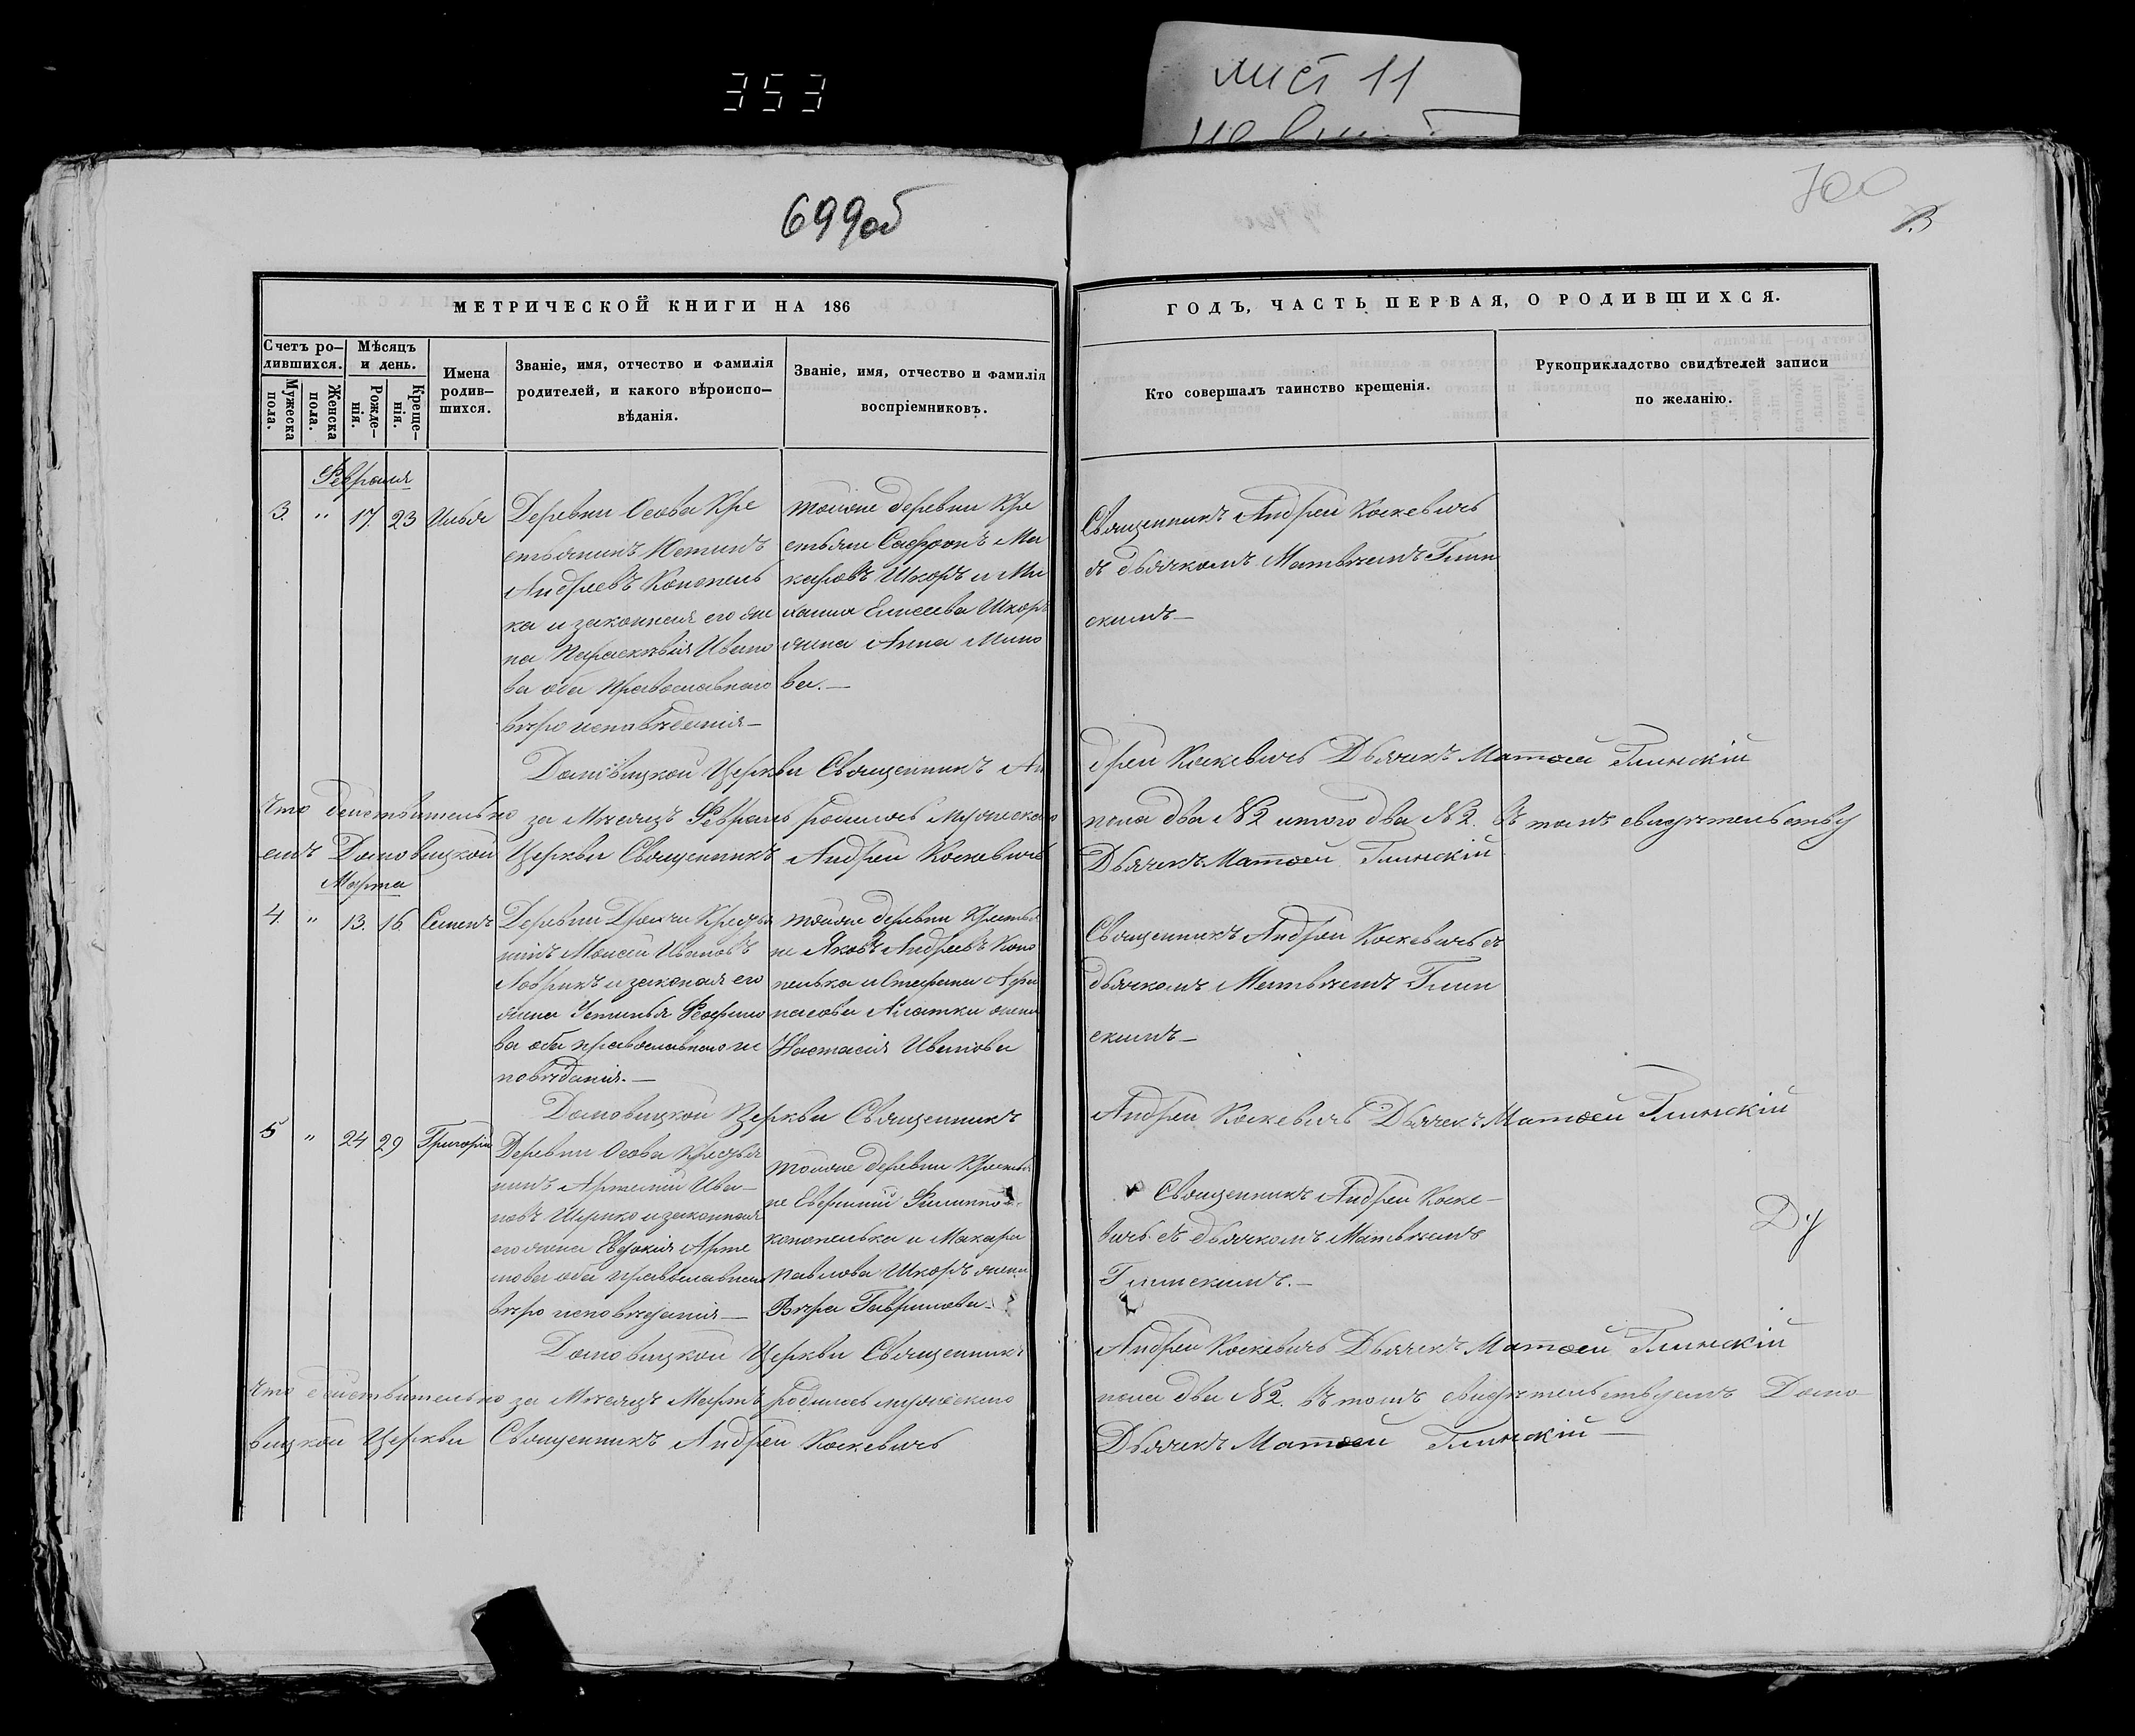 353
лист 11
699об
700
МЕТРИЧЕСКОЙ КНИГИ НА 186
ГОДЪ, ЧАСТЬ ПЕРВАЯ, О РОДИВШИХСЯ.
Счетъ ро-
дившихся.
Мужеска
пола.
Женска
пола.
Мѣсяцъ
и день.
Рожде-
нія.
Креще-
нія.
Имена
родив-
шихся.
Званіе, имя, отчество и фамилія
родителей, и какого вѣроиспо-
вѣданія.
Званіе, имя, отчество и фамилія
воспріемниковъ.
Кто совершалъ таинство крещенія.
Рукоприкладство свидѣтелей записи
по желанію.
Февраля
3. " 17. 23 Илья
Деревни Осова Кре
стьянинъ Устинъ
Андреевъ Конопель
ка и законная его же
на Параскѣвія Ивано
ва оба Православнаго
вѣроисповѣданія—
тойже деревни Кре
стьяне Сафронъ Ма
каровъ Шкоръ и Ми
хаила Елисеева Шкоръ
жена Анна Мино
ва.—
Священникъ Андрей Коскевичъ
съ дьячкомъ Матвѣемъ Глин
скимъ—
Домовицкой Церкви Священникъ Ан
дрей Коскевичъ Дьячекъ Матѳей Глинскій
Что дѣйствительно за Мѣсяцъ Февраль родилось мужескаго
пола два №2 итого два №2. въ томъ свидѣтельству
емъ Домовицкой Церкви Священникъ Андрей Коскевичъ
Дьячекъ Матѳей Глинскій
Марта
4. " 13. 16 Семенъ
Деревни Крестья
нинъ Моисей Ивановъ
и законная его
жена Устинья
ва оба православнаго ис
повѣданія.—
тойже деревни Крестья
не Яковъ Андреевъ Коно
пелька и Стефана Афа
насова жена
Настасія Иванова
Священникъ Андрей Коскевичъ съ
дьячкомъ Матвѣемъ Глин
скимъ—
Домовицкой Церкви Священникъ
Андрей Коскевичъ Дьячекъ Матѳей Глинскій
5 " 24 29 Григорій
Деревни Осова Крестья
нинъ Артемій Ива-
новъ и законная
его жена Евдокія Арте
мова оба православнаго
вѣроисповѣданія—
тойже деревни Крестья
не Филиппов
конопелька и Макара
Павлова Шкоръ жена
Вѣра Гаврилова—
Священникъ Андрей Коске-
вичъ съ дьячкомъ Матвѣемъ
Глинскимъ.—
Ду
Домовицкой Церкви Священникъ
Андрей Коскевичъ Дьячекъ Матѳей Глинскій
Что дѣйствительно за Мѣсяцъ Мартъ родилось мужескаго
пола два №2. въ томъ свидѣтельствуемъ Домо
вицкой Церкви Священникъ Андрей Коскевичъ
Дьячекъ Матѳей Глинскій—